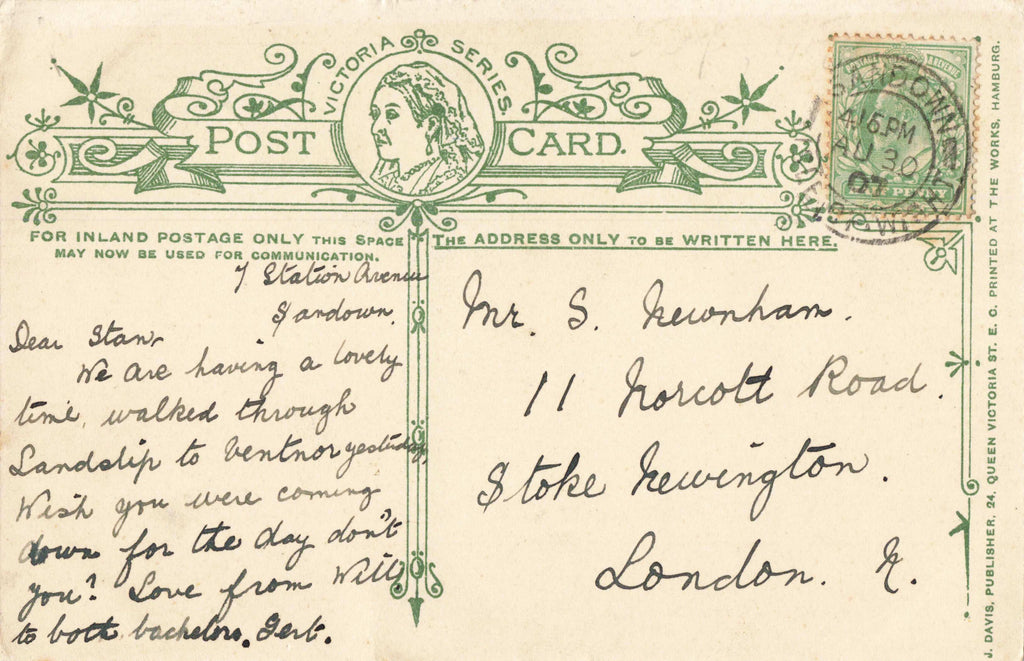 VICTORIA SERIES
POST CARD.
SANDOWN
4.15 PM
AU 30
07
FOR INLAND POSTAGE ONLY THIS SPACE
MAY NOW BE USED FOR COMMUNICATION.
THE ADDRESS ONLY TO BE WRITTEN HERE.
7 Station Avenue
Sandown.
Dear Stan,
We are having a lovely
time, walked through
Landslip to Ventnor yesterday,
Wish you were coming
down for the day don't
you? Love from Will
to both bachelors. Gert.
Mr. S. Newnham.
11 Norcott Road.
Stoke Newington.
London. N.
J. DAVIS, PUBLISHER, 24, QUEEN VICTORIA ST. E. C. PRINTED AT THE WORKS, HAMBURG.